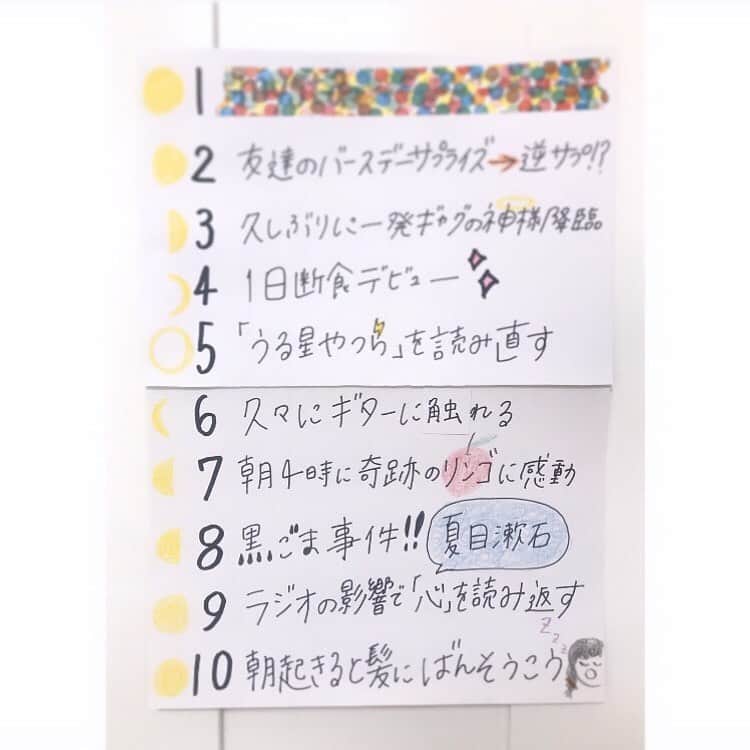 1
2 友達のバースデーサプライズ→逆サプ!?
3 久しぶりに一発ギャグの神様降臨
4 1日断食デビュー
5 「うる星やつら」を読み直す
6 久々にギターに触れる
7 朝4時に奇跡のリンゴに感動
8 黒ごま事件!! 夏目漱石
9 ラジオの影響で「心」を読み返す
zzz
10 朝起きると髪にばんそうこう